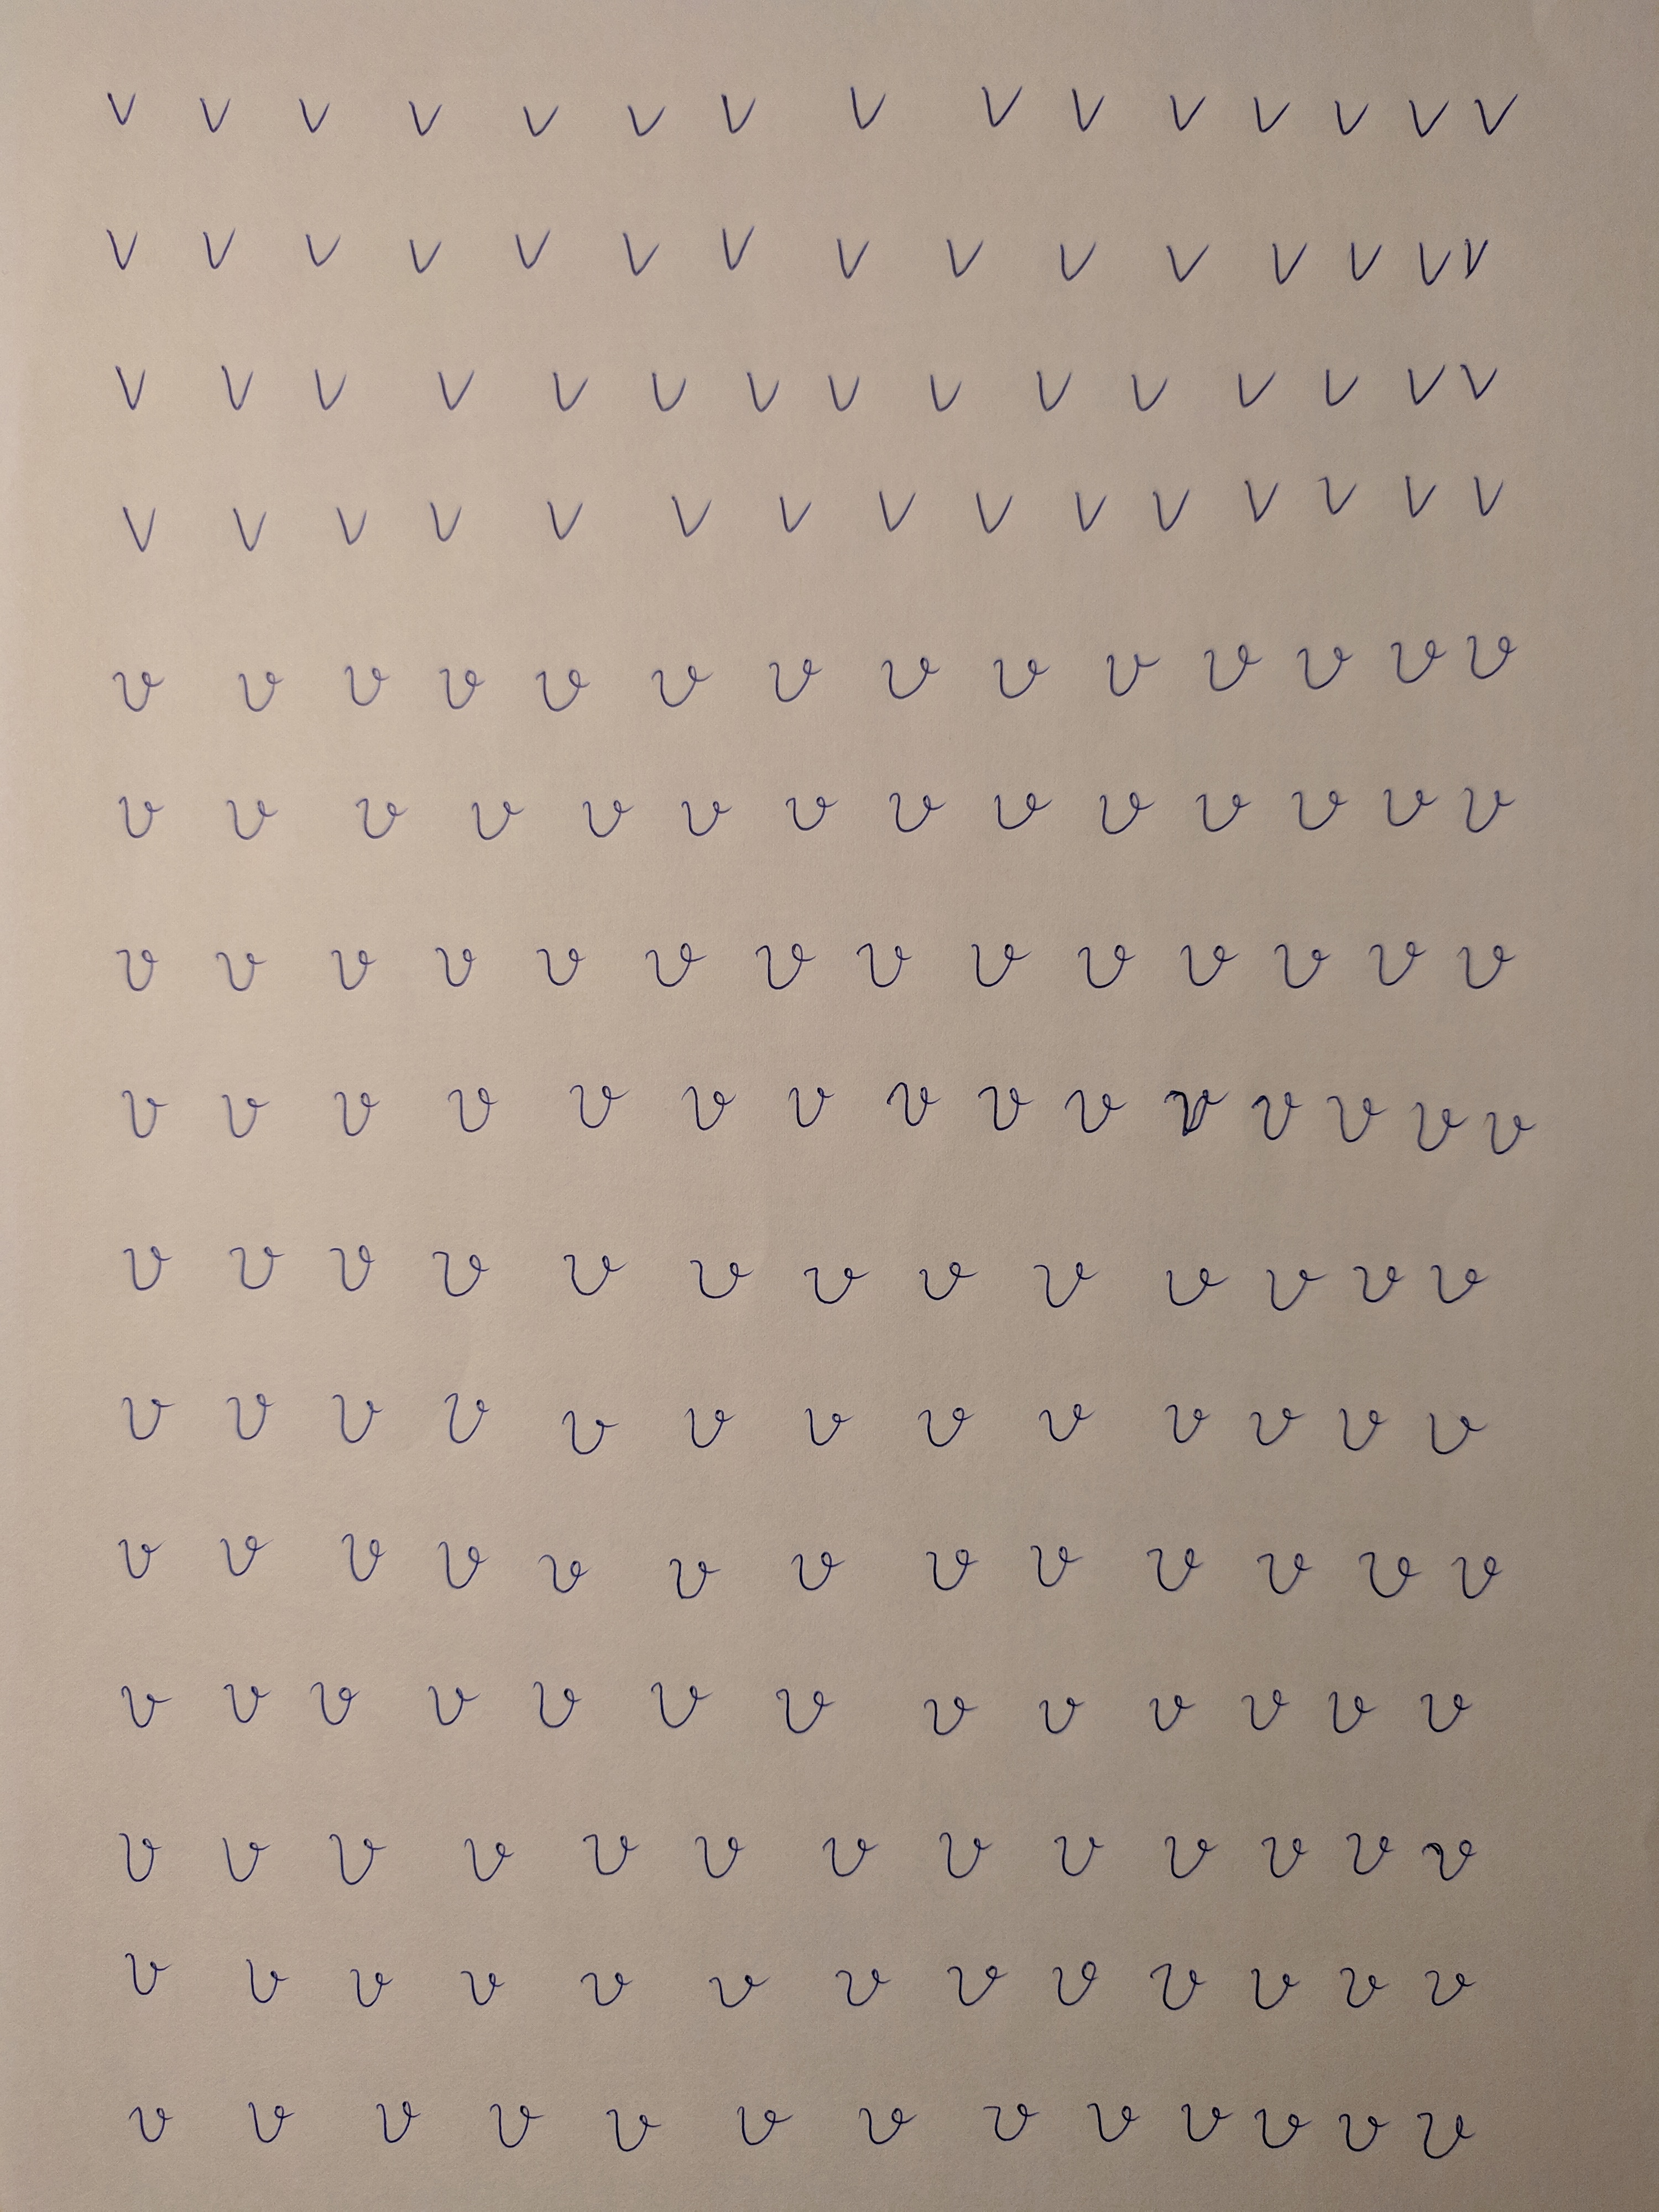 v v v v v v v v v v v v v v v
v v v v v v v v v v v v v v v
v v v v v v v v v v v v v v v
v v v v v v v v v v v v v v v
v v v v v v v v v v v v v v
v v v v v v v v v v v v v v
v v v v v v v v v v v v v v
v v v v v v v v v v v v v v v
v v v v v v v v v v v v v
v v v v v v v v v v v v v
v v v v v v v v v v v v v
v v v v v v v v v v v v v
v v v v v v v v v v v v v
v v v v v v v v v v v v v
v v v v v v v v v v v v v